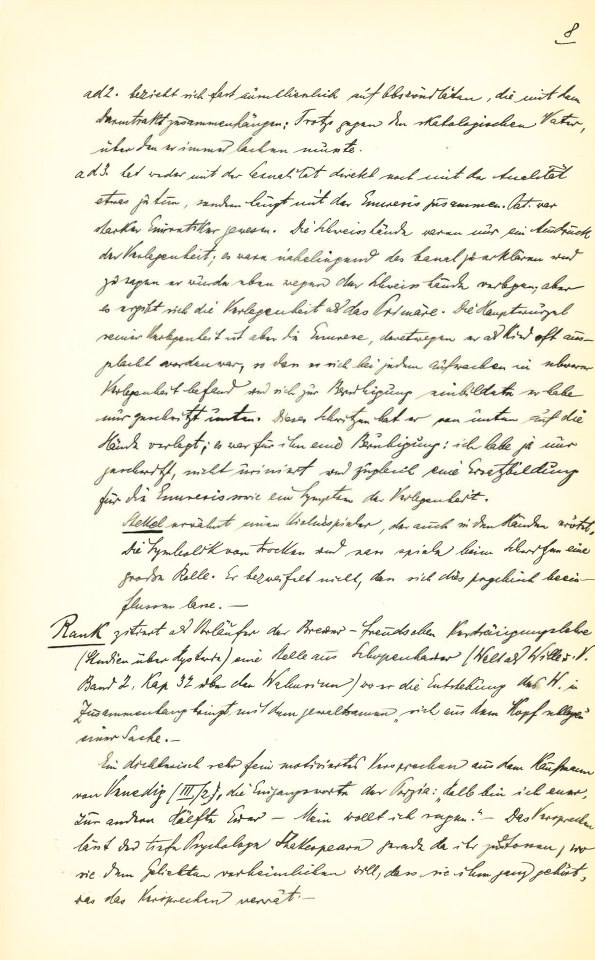 8
ad 2. bezieht sich fast ausschliesslich auf Absonderlichkeiten, die mit dem
Darmtrakt zusammenhängen; Trotz gegen den skatologischen Vater,
über den er immer lachen musste.
ad 3. hat weder mit der Sexualität direkt noch mit der Analität
etwas zu tun, sondern hängt mit der Enuresis zusammen. Pat. war
starker Enuretiker gewesen. Die Schweisshände waren nur ein Ausdruck
der Verlegenheit; es waren naheliegend das banal zu erklären und
zu sagen er würde eben wegen der Schweisshände verlegen; aber
es ergibt sich die Verlegenheit als das Primäre. Die Hauptwurzel
seiner Verlegenheit ist aber die Enurese, deretwegen er als Kind oft aus-
gelacht worden war, so dass er sich bei jedem Aufwachen in schwerer
Verlegenheit befand und sich zur Beruhigung einbildete er habe
nur geschwitzt unten. Dieses Schwitzen hat er von unten auf die
Hände verlegt; es war für ihn eine Beruhigung: ich habe ja nur
geschwitzt, nicht uriniert und zugleich eine Ersatzbildung
für die Enuresis sowie ein Symptom der Verlegenheit.
Stekel erwähnt einen Violinspieler, der auch in den Händen
Die Symbolik von trocken und nass spiele beim Schwitzen eine
große Rolle. Er bezweifelt nicht, dass sich dies psychisch beein-
flussen lasse. —
Rank zitiert als Vorläufer der Breuer-Freudschen Verdrängungslehre
(Studien über Hysterie) eine Stelle aus Schopenhauer (Welt als Wille u. V.
Band 2, Kap 32 über den Wahnsinn) wo er die Entstehung des W. in
Zusammenhang bringt mit dem gewaltsamen „sich aus dem Kopf schlagen"
einer Sache. —
Ein dichterisch sehr fein motiviertes Versprechen aus dem Kaufmann
von Venedig (III/2), die Eingangsworte der Porzia: „halb bin ich euer,
zur andern Hälfte Euer — Mein wollt ich sagen". — Das Versprechen
lässt der tiefe Psychologe Shakespeare gerade da ihr zustossen, wo
sie dem Geliebten verheimlichen will, dass sie ihm ganz gehört,
was das Versprechen verrät. —